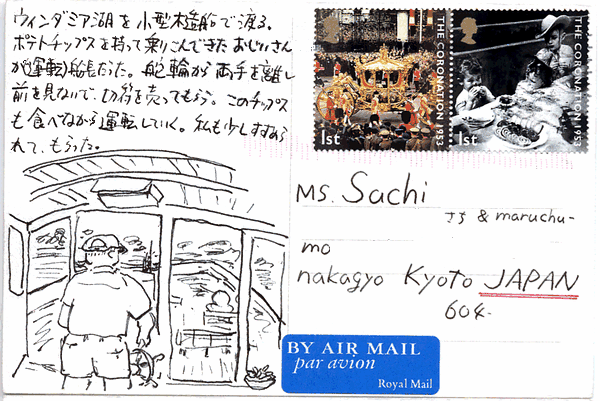 ウィンダミア湖を小型木造船で渡る。
ポテトチップスを持って乗りこんできたおじいさん
が(運転)船長だった。舵輪から両手を離し
前を見ないで、切符を売ってもらう。このチップス
も食べながら運転していく。私も少しすすめら
れて、もらった。
THE CORONATION 1953
1st
THE CORONATION 1953
1st
MS. Sachi
さち & maruchu-
mo
nakagyo Kyoto JAPAN
604-
BY AIR MAIL
par avion
Royal Mail